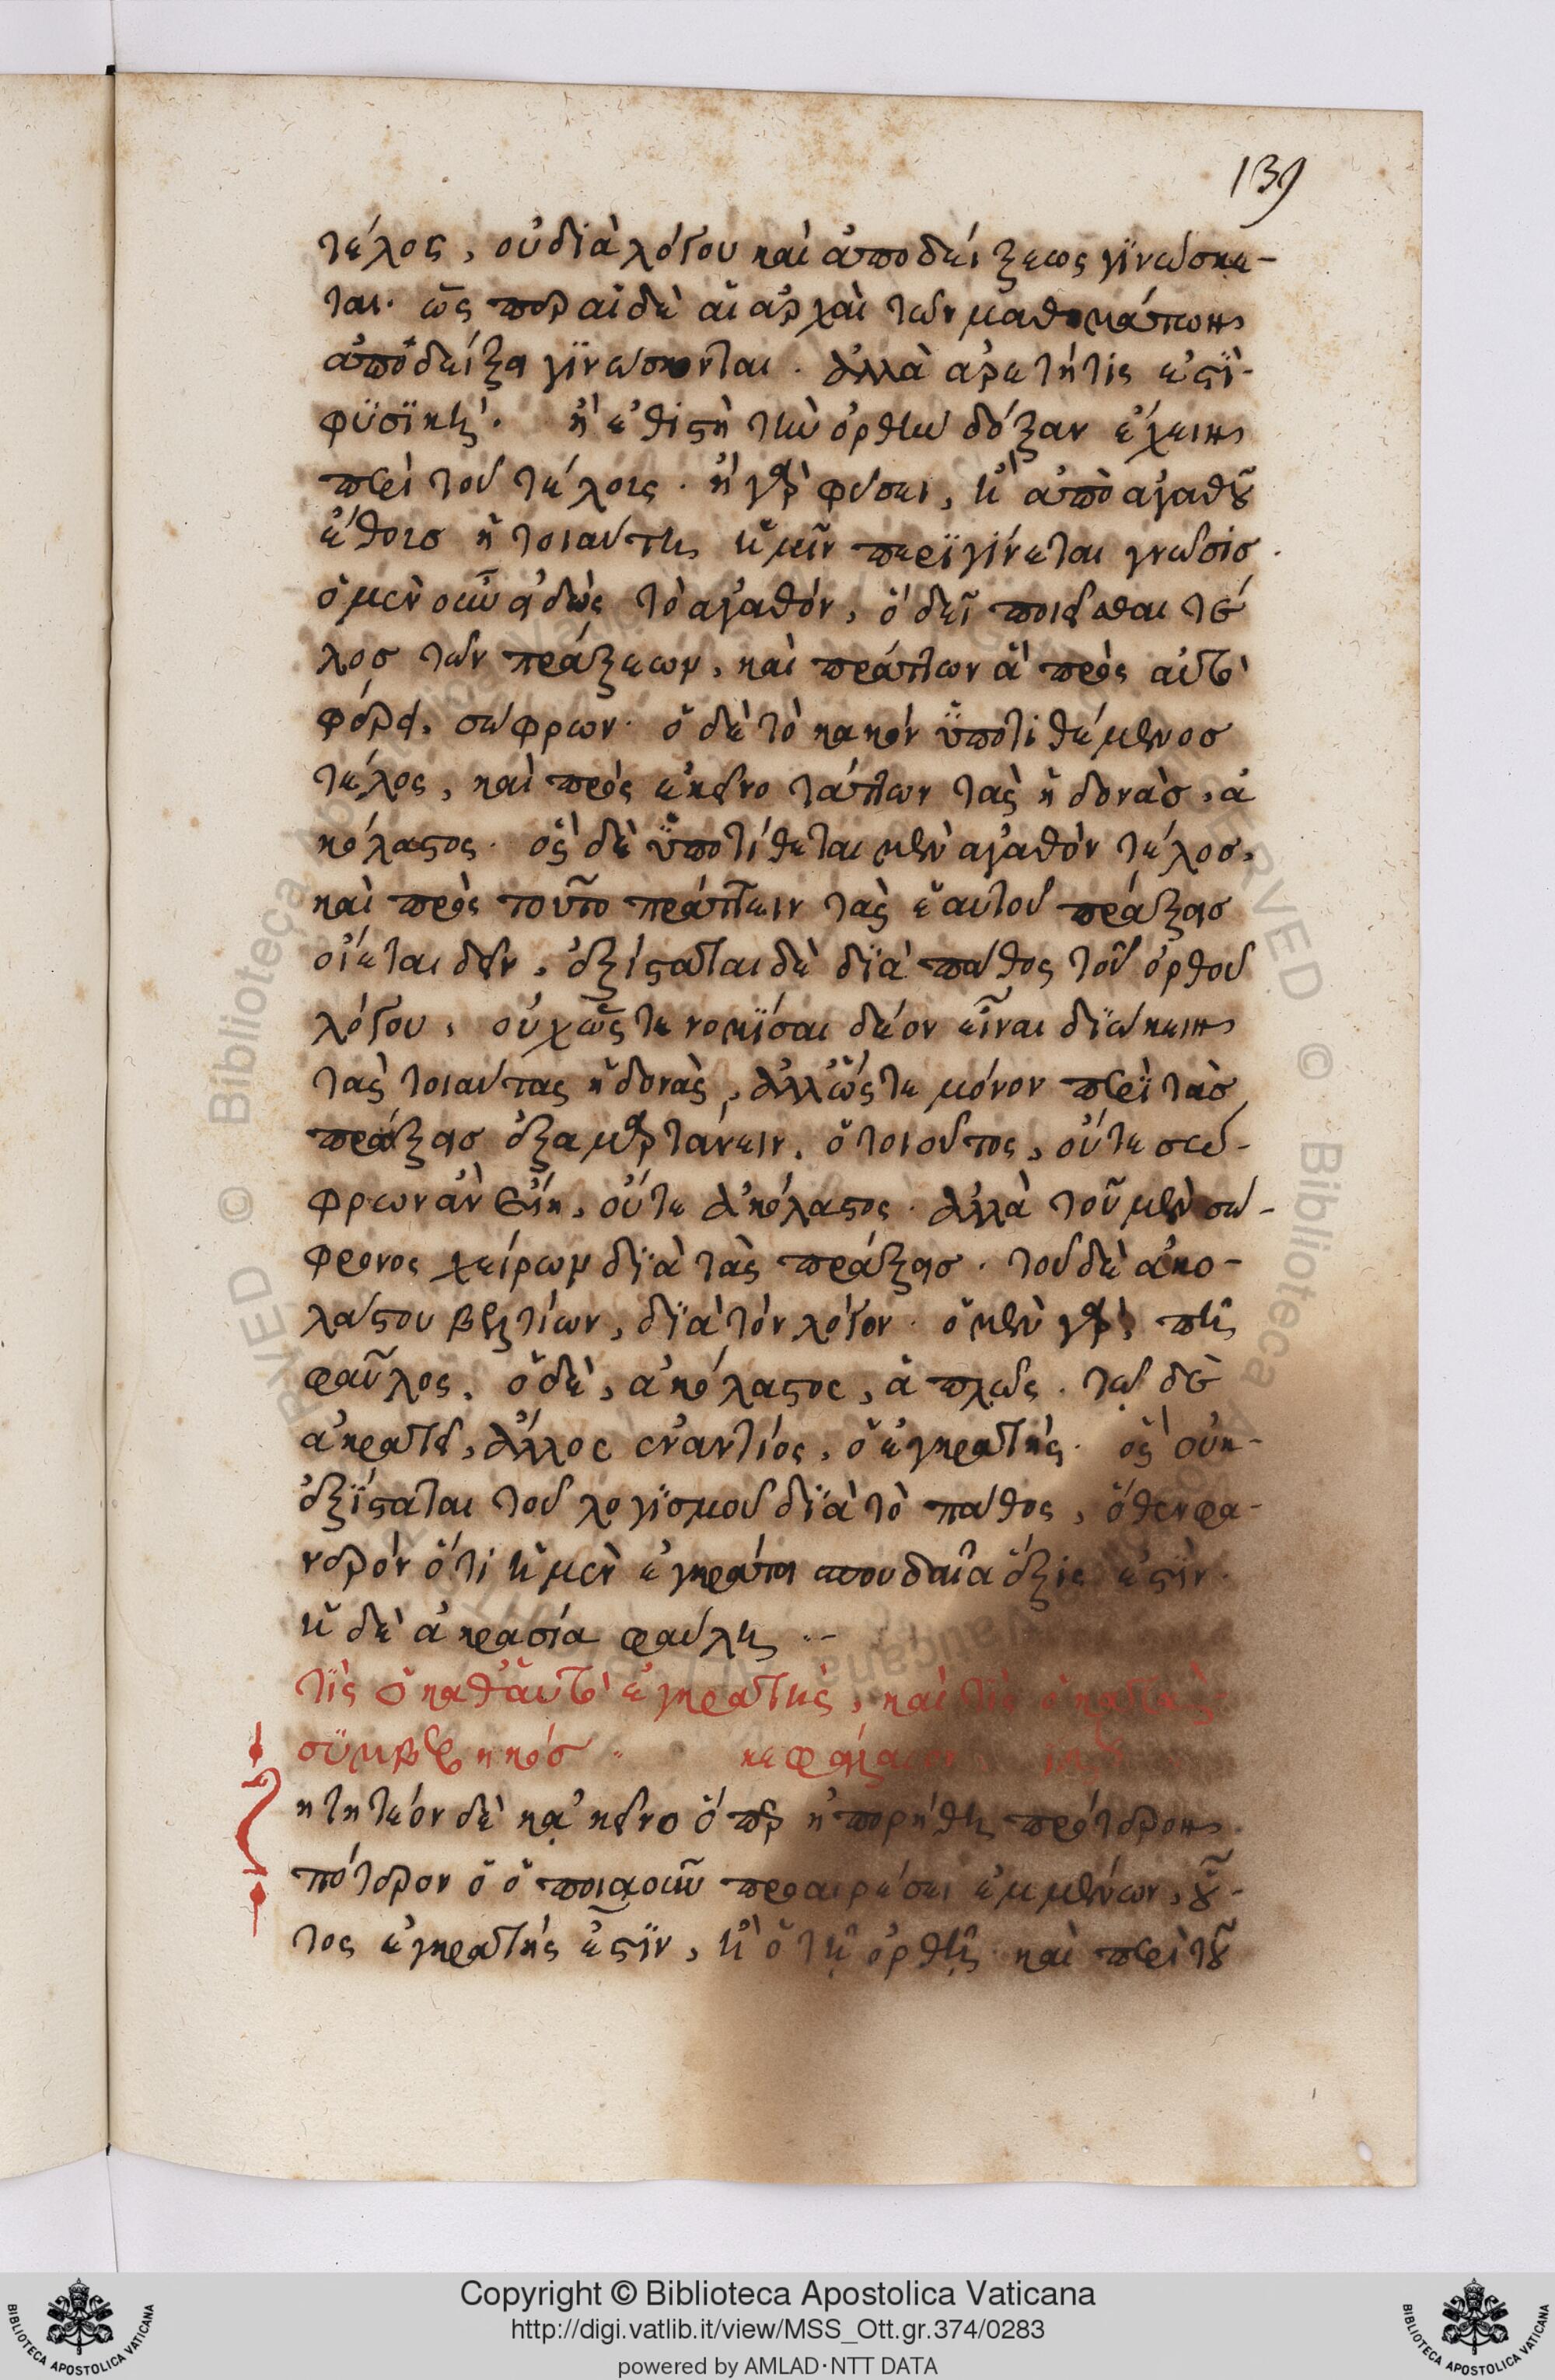 139
τέλος, οὐ διὰ λόγου καὶ ἀποδείξεως γινώσκε-
ται. ὥς περ αἱ δὲ αἱ ἀρχαὶ τῶν μαθημάτων
ἀποδείξει γινώσκονται. ἀλλὰ ἀρετή τις ἐστὶ
φϋσϊκὴ. ἢ ἐθιστὴ τὴν ὀρθὴν δόξαν ἔχειν
περὶ τοῦ τέλους. ἢ γὰρ φύσει, ἢ ἀπὸ ἀγαθοῦ
ἔθους ἡ τοιαύτη ἡμῖν περϊγίνεται γνῶσις.
ὁ μὲν οὖν εἰδὼς τὸ ἀγαθόν, ὃ δεῖ ποιεῖσθαι τέ
λος τῶν πράξεων, καὶ πράττων ἃ πρὸς αὐτὸ
φέρει, σώφρων. ὁ δὲ τὸ κακὸν ὑποτιθέμενος
τέλος, καὶ πρὸς ἐκεῖνο τάττων τὰς ἡδονὰς, ἀ
κόλαστος. ὃς δὲ ὑποτίθεται μὲν ἀγαθὸν τέλος,
καὶ πρὸς τοῦτο πράττειν τὰς ἑαυτοῦ πράξεις
οἴεται δεῖν, ἐξίσταται δὲ διὰ πάθος τοῦ ὀρθοῦ
λόγου, οὐχ ὥς τε νομίσαι δέον εἶναι διώκειν
τὰς τοιαύτας ἡδονὰς, ἀλλ' ὥς τε μόνον περὶ τὰς
πράξεις ἐξαμαρτάνειν, ὁ τοιοῦτος, οὔτε σώ-
φρων ἂν εἴη, οὔτε ἀκόλαστος. ἀλλὰ τοῦ μὲν σώ-
φρονος χείρων διὰ τὰς πράξεις. τοῦ δὲ ἀκο-
λάστου βελτίων, διὰ τὸν λόγον. ὁ μὲν γὰρ, πῆ
φαῦλος. ὁ δὲ, ἀκόλαστος, ἁπλῶς. τῷ δὲ
ἀκρατεῖ, ἄλλος ἐναντίος, ὁ ἐγκρατής. ὃς οὐκ-
ἐξίσταται τοῦ λογισμοῦ διὰ τὸ πάθος, ὅθεν φα-
νερὸν ὅτι ἡ μὲν ἐγκράτεια σπουδαῖα ἕξις ἐστὶν.
ἡ δὲ ἀκρασία φαύλη ..-
τίς ὁ καθ' αὑτὸ ἐγκρατὴς, καὶ τίς ὁ κατὰ
συμβεβηκός .. κεφάλαιον
ητητέον δὲ κἀκεῖνο ὅπερ ἠπορήθη πρότερον.
πότερον ὁ ὁποιαοῦν προαιρέσει ἐμμένων, οὗ-
τος ἐγκρατής ἐστϊν, ἢ ὁ τῇ ὀρθῇ. καὶ περὶ τοῦ
Copyright © Biblioteca Apostolica Vaticana
http://digi.vatlib.it/view/MSS_Ott.gr.374/0283
powered by AMLAD·NTT DATA